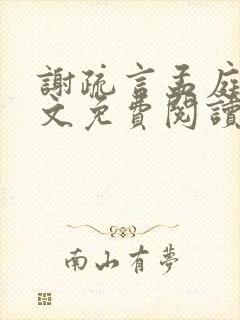 謝疏言孟庭
文免費閱讀
南山有夢